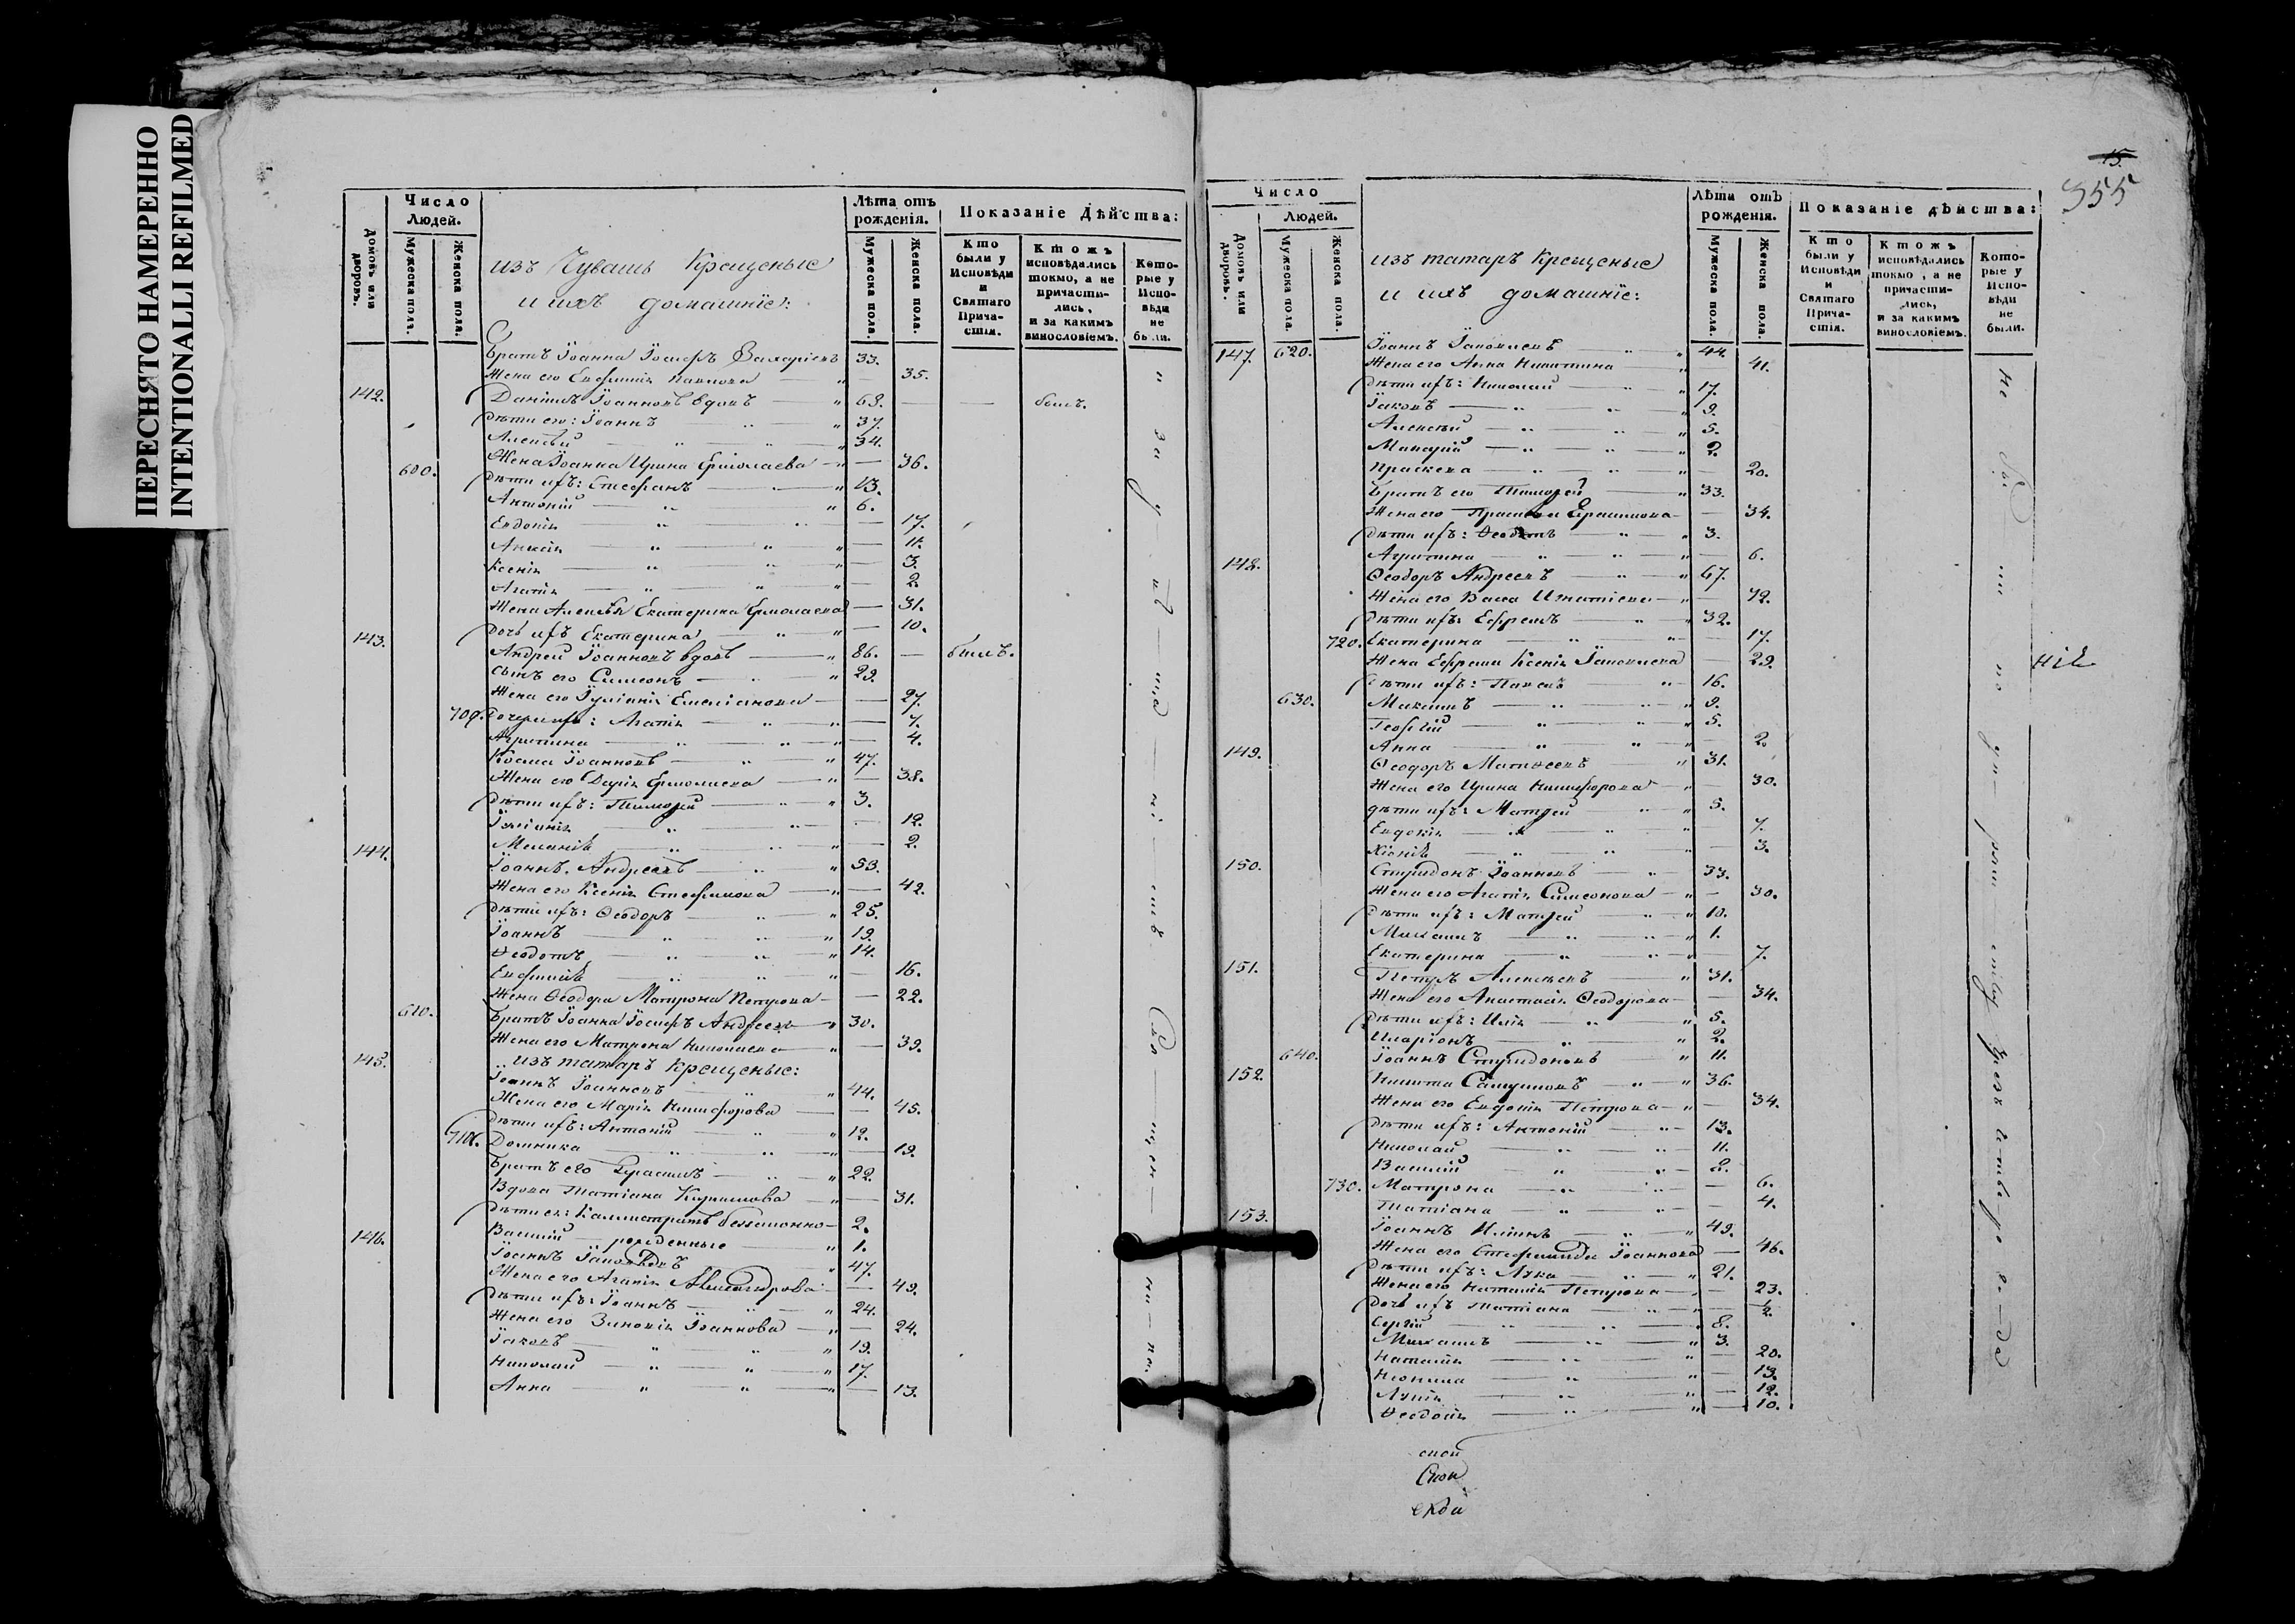 ПЕРЕСНЯТО НАМЕРЕННО
INTENTIONALLI REFILMED
Домовъ или дворовъ.
Число Людей.
Мужеска полъ.
Женска пола.
изъ Чувашъ Крещеные
и ихъ домашніе:
Лѣта отъ рожденія.
Мужеска пола.
Женска пола.
Показаніе Дѣйства:
Кто были у Исповѣди и Святаго Прича-стія.
Ктожъ исповѣдались токмо, а не причасти-лись, и за какимъ винословіемъ.
Кото-рые у Испо-вѣди не были.
Братъ Іоанна Іосифъ Захаріевъ 33.
Жена его Евфимія Павлова 35.
142. Даніилъ Іоанновъ вдовъ 68. былъ.
Дѣти его: Іоаннъ 37.
Алексѣй 34.
600. Жена Іоанна Ирина Ермолаева 36.
Дѣти ихъ: Стефанъ 13.
Антоній 6.
Евдокія 17.
Анисія 11.
Ксенія 3.
Агапія 2.
Жена Алексѣя Екатерина Ермолаева 31.
Дочь ихъ Екатерина 10.
143. Андрей Іоанновъ вдовъ 86. былъ.
Сынъ его Симеонъ 29.
Жена его Іуліанія Емеліанова 27.
700. Дочери ихъ: Агапія 7.
Агрипина 4.
Косма Іоанновъ 47.
Жена его Дарія Ермолаева 38.
Дѣти ихъ: Тимоѳей 3.
Іуліанія 12.
Меланія 2.
144. Іоаннъ Андреевъ 53.
Жена его Ксенія Стефанова 42.
Дѣти ихъ: Ѳеодоръ 25.
Іоаннъ 19.
Ѳеодотъ 14.
Евфимія 16.
Жена Ѳеодора Матрона Петрова 22.
610. Братъ Іоанна Іосифъ Андреевъ 30.
Жена его Матрона Николаева 39.
изъ татаръ Крещеные:
145. Іоаннъ Іоанновъ 44.
Жена его Марія Никифорова 45.
Дѣти ихъ: Антоній 12.
710. Домника 19.
Братъ его Герасимъ 22.
Вдова Татіана 31.
Дѣти ея: Каллистратъ беззаконно 2.
Василій рожденные 1.
146. Іоаннъ Іаковлевъ 47.
Жена его Агапія Александрова 49.
Дѣти ихъ: Іоаннъ 24.
Жена его Зиновія Іоаннова 24.
Іаковъ 19.
Николай 17.
Анна 13.
15.
355
Число
Домовъ или дворовъ.
Людей.
Мужеска пола.
Женска пола.
изъ татаръ Крещеные
и ихъ домашніе:
Лѣта отъ рожденія.
Мужеска пола.
Женска пола.
Показаніе дѣйства:
Кто были у Исповѣди и Святаго Прича-стія.
Ктожъ исповѣдались токмо, а не причасти-лись, и за какимъ винословіемъ.
Кото-рые у Испо-вѣди не были.
147. 620. Іоаннъ Іаковлевъ 44.
Жена его Анна Никитина 41.
Дѣти ихъ: Николай 17.
Іаковъ 9.
Алексѣй 5.
Макарій 2.
Праскева 20.
Братъ его Тимоѳей 33.
Жена его 34.
Дѣти ихъ: Ѳеодотъ 3.
Агрипина 6.
148. Ѳеодоръ Андреевъ 67.
Жена его Васса Игнатіева 72.
Дѣти ихъ: Ефремъ 32.
720. Екатерина 17.
Жена Ефрема Ксенія Іаковлева 29.
Дѣти ихъ: Павелъ 16.
630. Максимъ 9.
Георгій 5.
Анна 2.
149. Ѳеодоръ Матвеевъ 31.
Жена его Ирина Никифорова 30.
Дѣти ихъ: Матѳей 5.
Евдокія 7.
Хіонія 3.
150. Спиридонъ Іоанновъ 33.
Жена его Агапія Симеонова 30.
Дѣти ихъ: Матѳей 10.
Михаилъ 1.
Екатерина 7.
151. Петръ Алексѣевъ 31.
Жена его Анастасія Ѳеодорова 34.
Дѣти ихъ: Илія 5.
Иларіонъ 2.
640. Іоаннъ Спиридоновъ 11.
152. Никита 36.
Жена его Евдокія Петрова 34.
Дѣти ихъ: Антоній 13.
Николай 11.
Василій 2.
730. Матрона 6.
Татіана 4.
153. Іоаннъ Илиинъ 49.
Жена его Стефанида Іоаннова 46.
Дѣти ихъ: Лука 21.
Жена его Наталія Петрова 23.
Дочь ихъ Татіана ½.
Сергій 8.
Михаилъ 3.
Наталія 20.
Неонила 13.
Лукія 12.
Ѳеодосія 10.